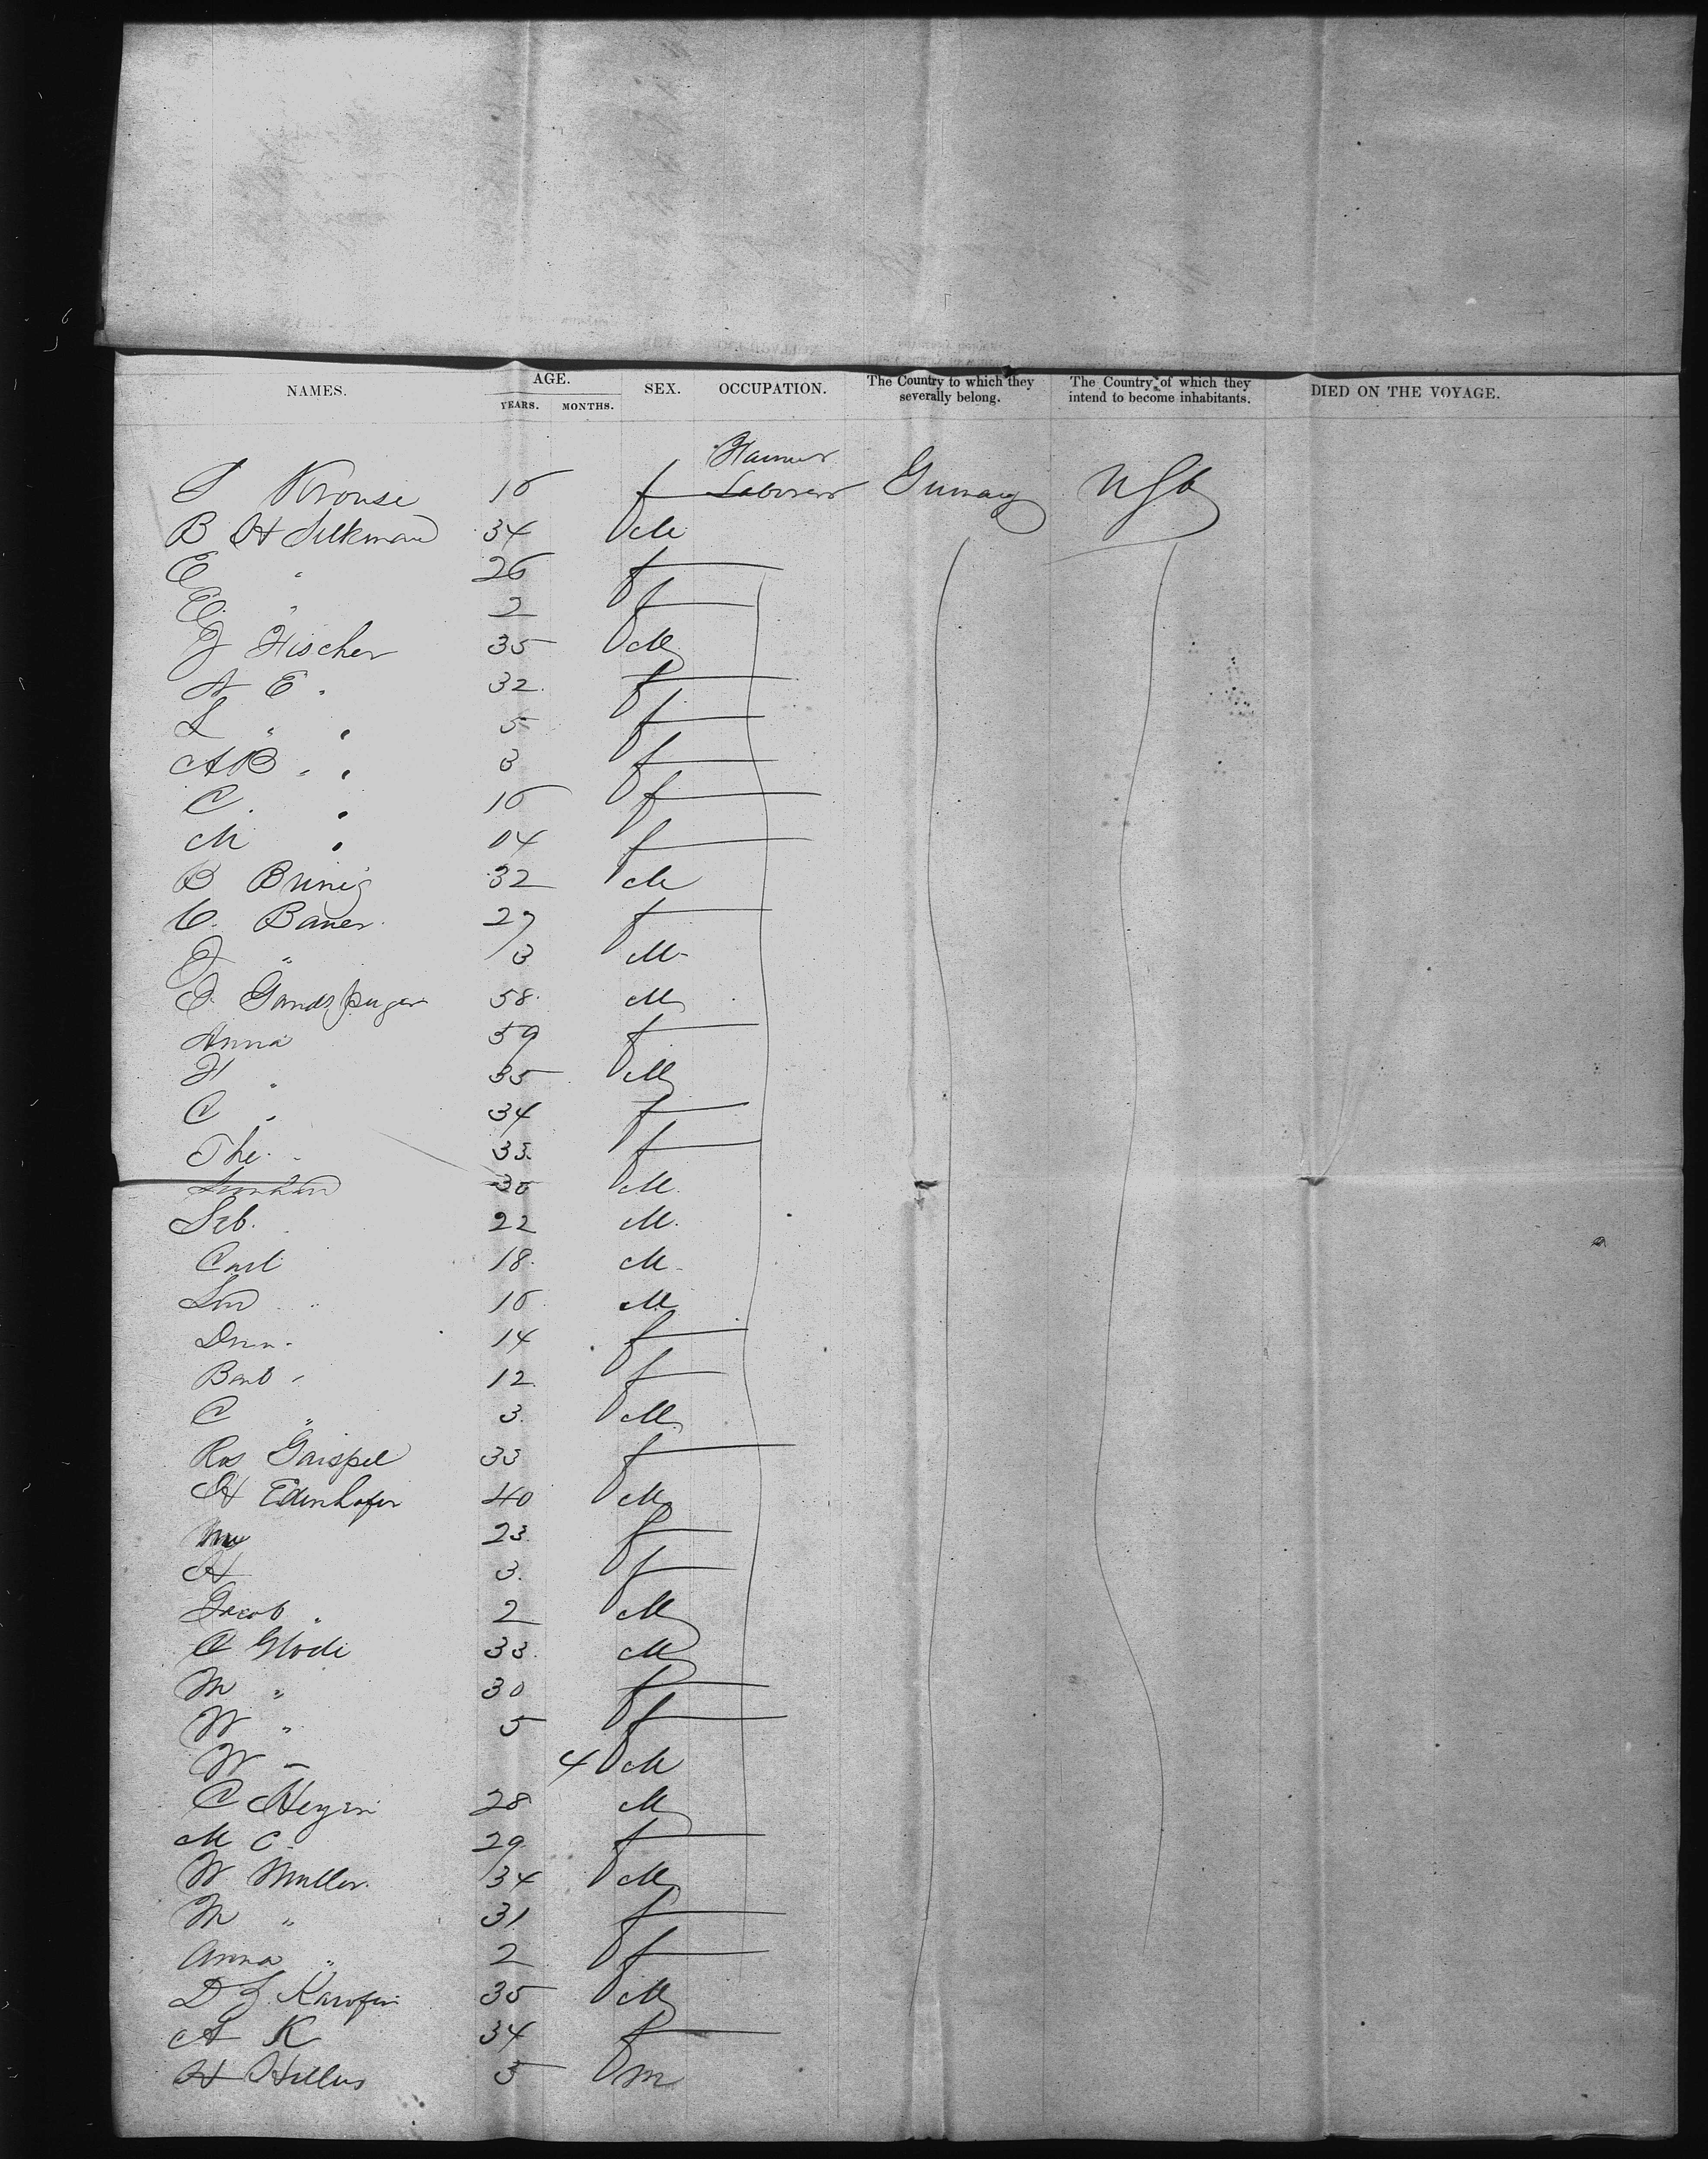 NAMES. AGE. SEX. OCCUPATION. The Country to which they severally belong. The Country of which they intend to become inhabitants. DIED ON THE VOYAGE.
YEARS. MONTHS.
Farmer
S Krouse 16 f Laborer Germany USA
B H Silkman 34 M
E " 26 f
E. " 2 f
J Fischer 35 M
A E " 32 f
L " " 5 f
AB " " 3 f
C. " 16 f
M " 04 f
B Brinig 32 M
C. Bauer 27 f
J " 3 M
58 M
Anna 59 f
F " 35 M
C " 34 f
The. " 33 f
30 M
Seb. 22 M
Carl 18 M
16 M
14 f
Barb " 12 f
C " 3 M
Ros Gaispel 33 f
H Edenhofer 40 M
23 f
A 3 f
Jacob " 2 M
C Glode 33 M
M " 30 f
W " 5 f
W " 4 M
C 28 M
M C 29 f
W Muller 34 M
M " 31 f
Anna " 2 f
35 M
A K 34 f
H 5 m